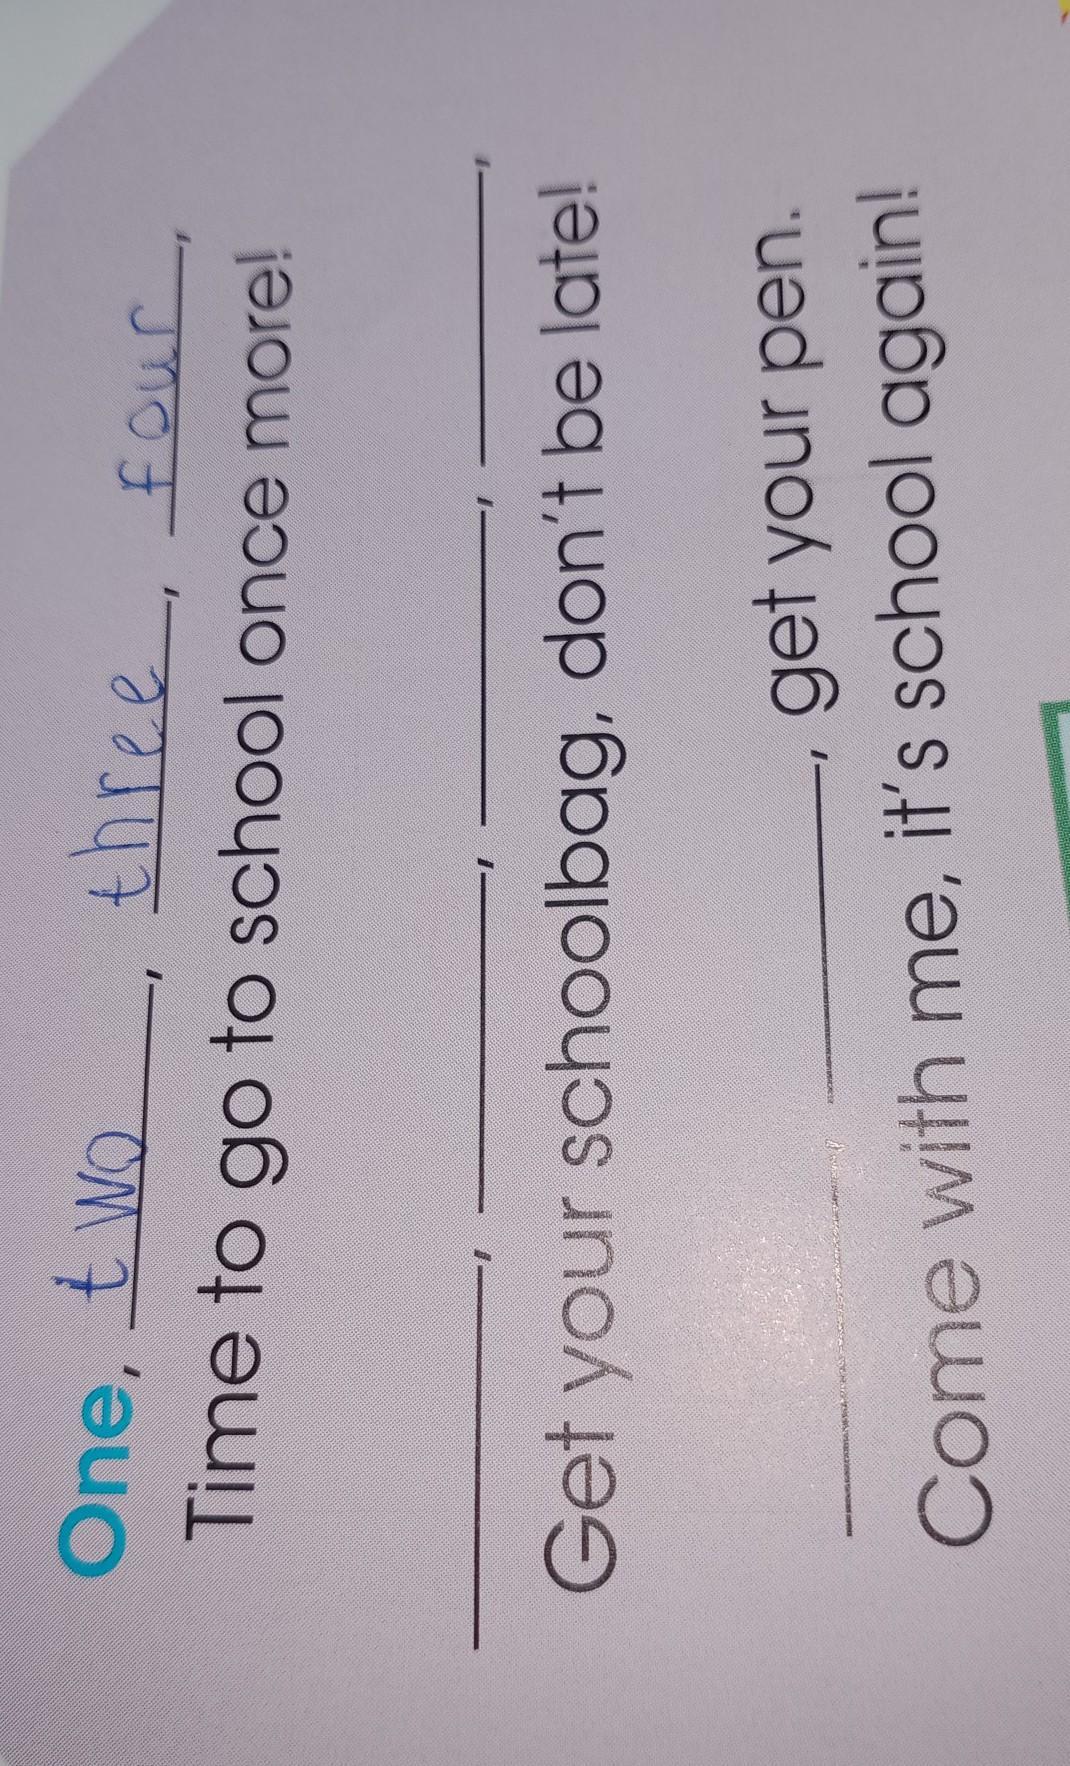 One, two, three, four,
Time to go to school once more!
____, ____, ____, ____,
Get your schoolbag, don't be late!
____, ____, get your pen.
Come with me, it's school again!